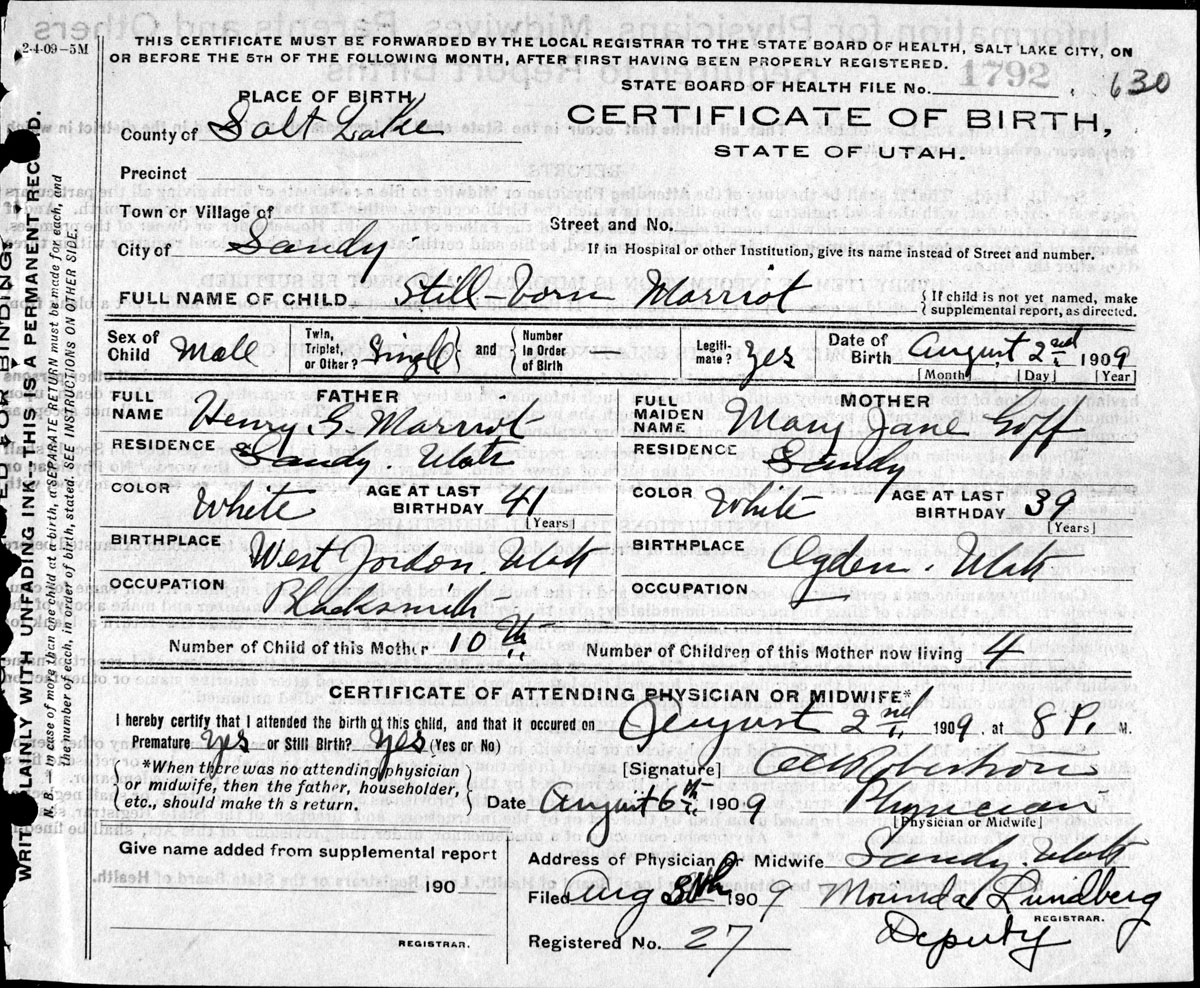 2-4-09-5M
THIS CERTIFICATE MUST BE FORWARDED BY THE LOCAL REGISTRAR TO THE STATE BOARD OF HEALTH, SALT LAKE CITY, ON
OR BEFORE THE 5TH OF THE FOLLOWING MONTH, AFTER FIRST HAVING BEEN PROPERLY REGISTERED.
1792
STATE BOARD OF HEALTH FILE No. 630
PLACE OF BIRTH
CERTIFICATE OF BIRTH,
STATE OF UTAH.
County of Salt Lake
Precinct
Town or Village of
Street and No.
City of Sandy
If in Hospital or other Institution, give its name instead of Street and number.
FULL NAME OF CHILD Still born Marriot
{If child is not yet named, make
supplemental report, as directed.
Sex of Child Male
Twin, Triplet, or Other? Single } and { Number in Order of Birth
Legiti-mate? Yes
Date of Birth August 2nd 1909
[Month] [Day] [Year]
FATHER
FULL NAME Henry G. Marriot
RESIDENCE Sandy Utah
COLOR White
AGE AT LAST BIRTHDAY 41
[Years]
BIRTHPLACE West Jordon. Utah
OCCUPATION Blacksmith
MOTHER
FULL MAIDEN NAME Mary Jane Goff
RESIDENCE Sandy
COLOR White
AGE AT LAST BIRTHDAY 39
[Years]
BIRTHPLACE Ogden. Utah
OCCUPATION
Number of Child of this Mother 10th
Number of Children of this Mother now living 4
CERTIFICATE OF ATTENDING PHYSICIAN OR MIDWIFE*
I hereby certify that I attended the birth of this child, and that it occured on August 2nd 1909, at 8 P. M.
Premature Yes or Still Birth? Yes (Yes or No)
*When there was no attending physician
or midwife, then the father, householder,
etc., should make th s return.
[Signature] Robertson
Date August 6th 1909 Physician
[Physician or Midwife]
Give name added from supplemental report
190
REGISTRAR.
Address of Physician or Midwife Sandy. Utah
Filed Aug 1909 Lundberg
REGISTRAR.
Deputy
Registered No. 27
WRITE PLAINLY WITH UNFADING INK-THIS IS A PERMANENT RECORD.
N. B.-In case of more than one child at a birth, a SEPARATE RETURN must be made for each, and
the number of each, in order of birth, stated. SEE INSTRUCTIONS ON OTHER SIDE.
FOR BINDING